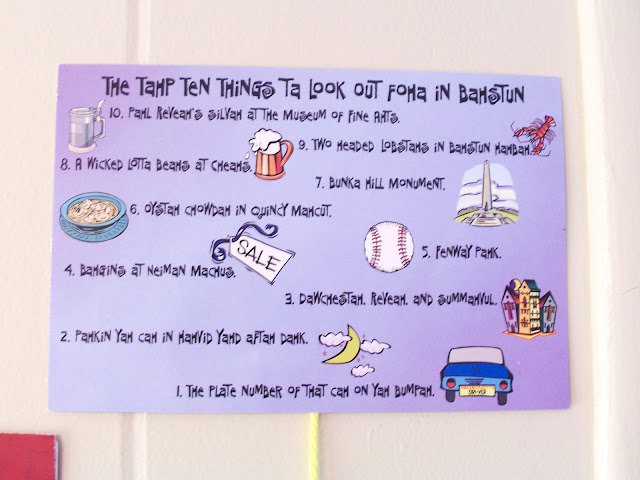 The Tahp Ten Things ta Look Out Foha in Bahstun
10. Pahl Reveah's Silvah at the Museum of Fine Arts.
9. Two Headed Lobstahs in Bahstun Hahbah.
8. A Wicked Lotta Beahs at Cheahs.
7. Bunka Hill Monument.
6. Oystah Chowdah in Quincy Mahcut.
SALE
5. Fenway Pahk.
4. Bahgins at Neiman Machus.
3. Dawchestah, Reveah, and Summahvul.
2. Pahkin Yah Cah in Hahvid Yahd Aftah Dahk.
1. The Plate Number of That Cah on Yah Bumpah.